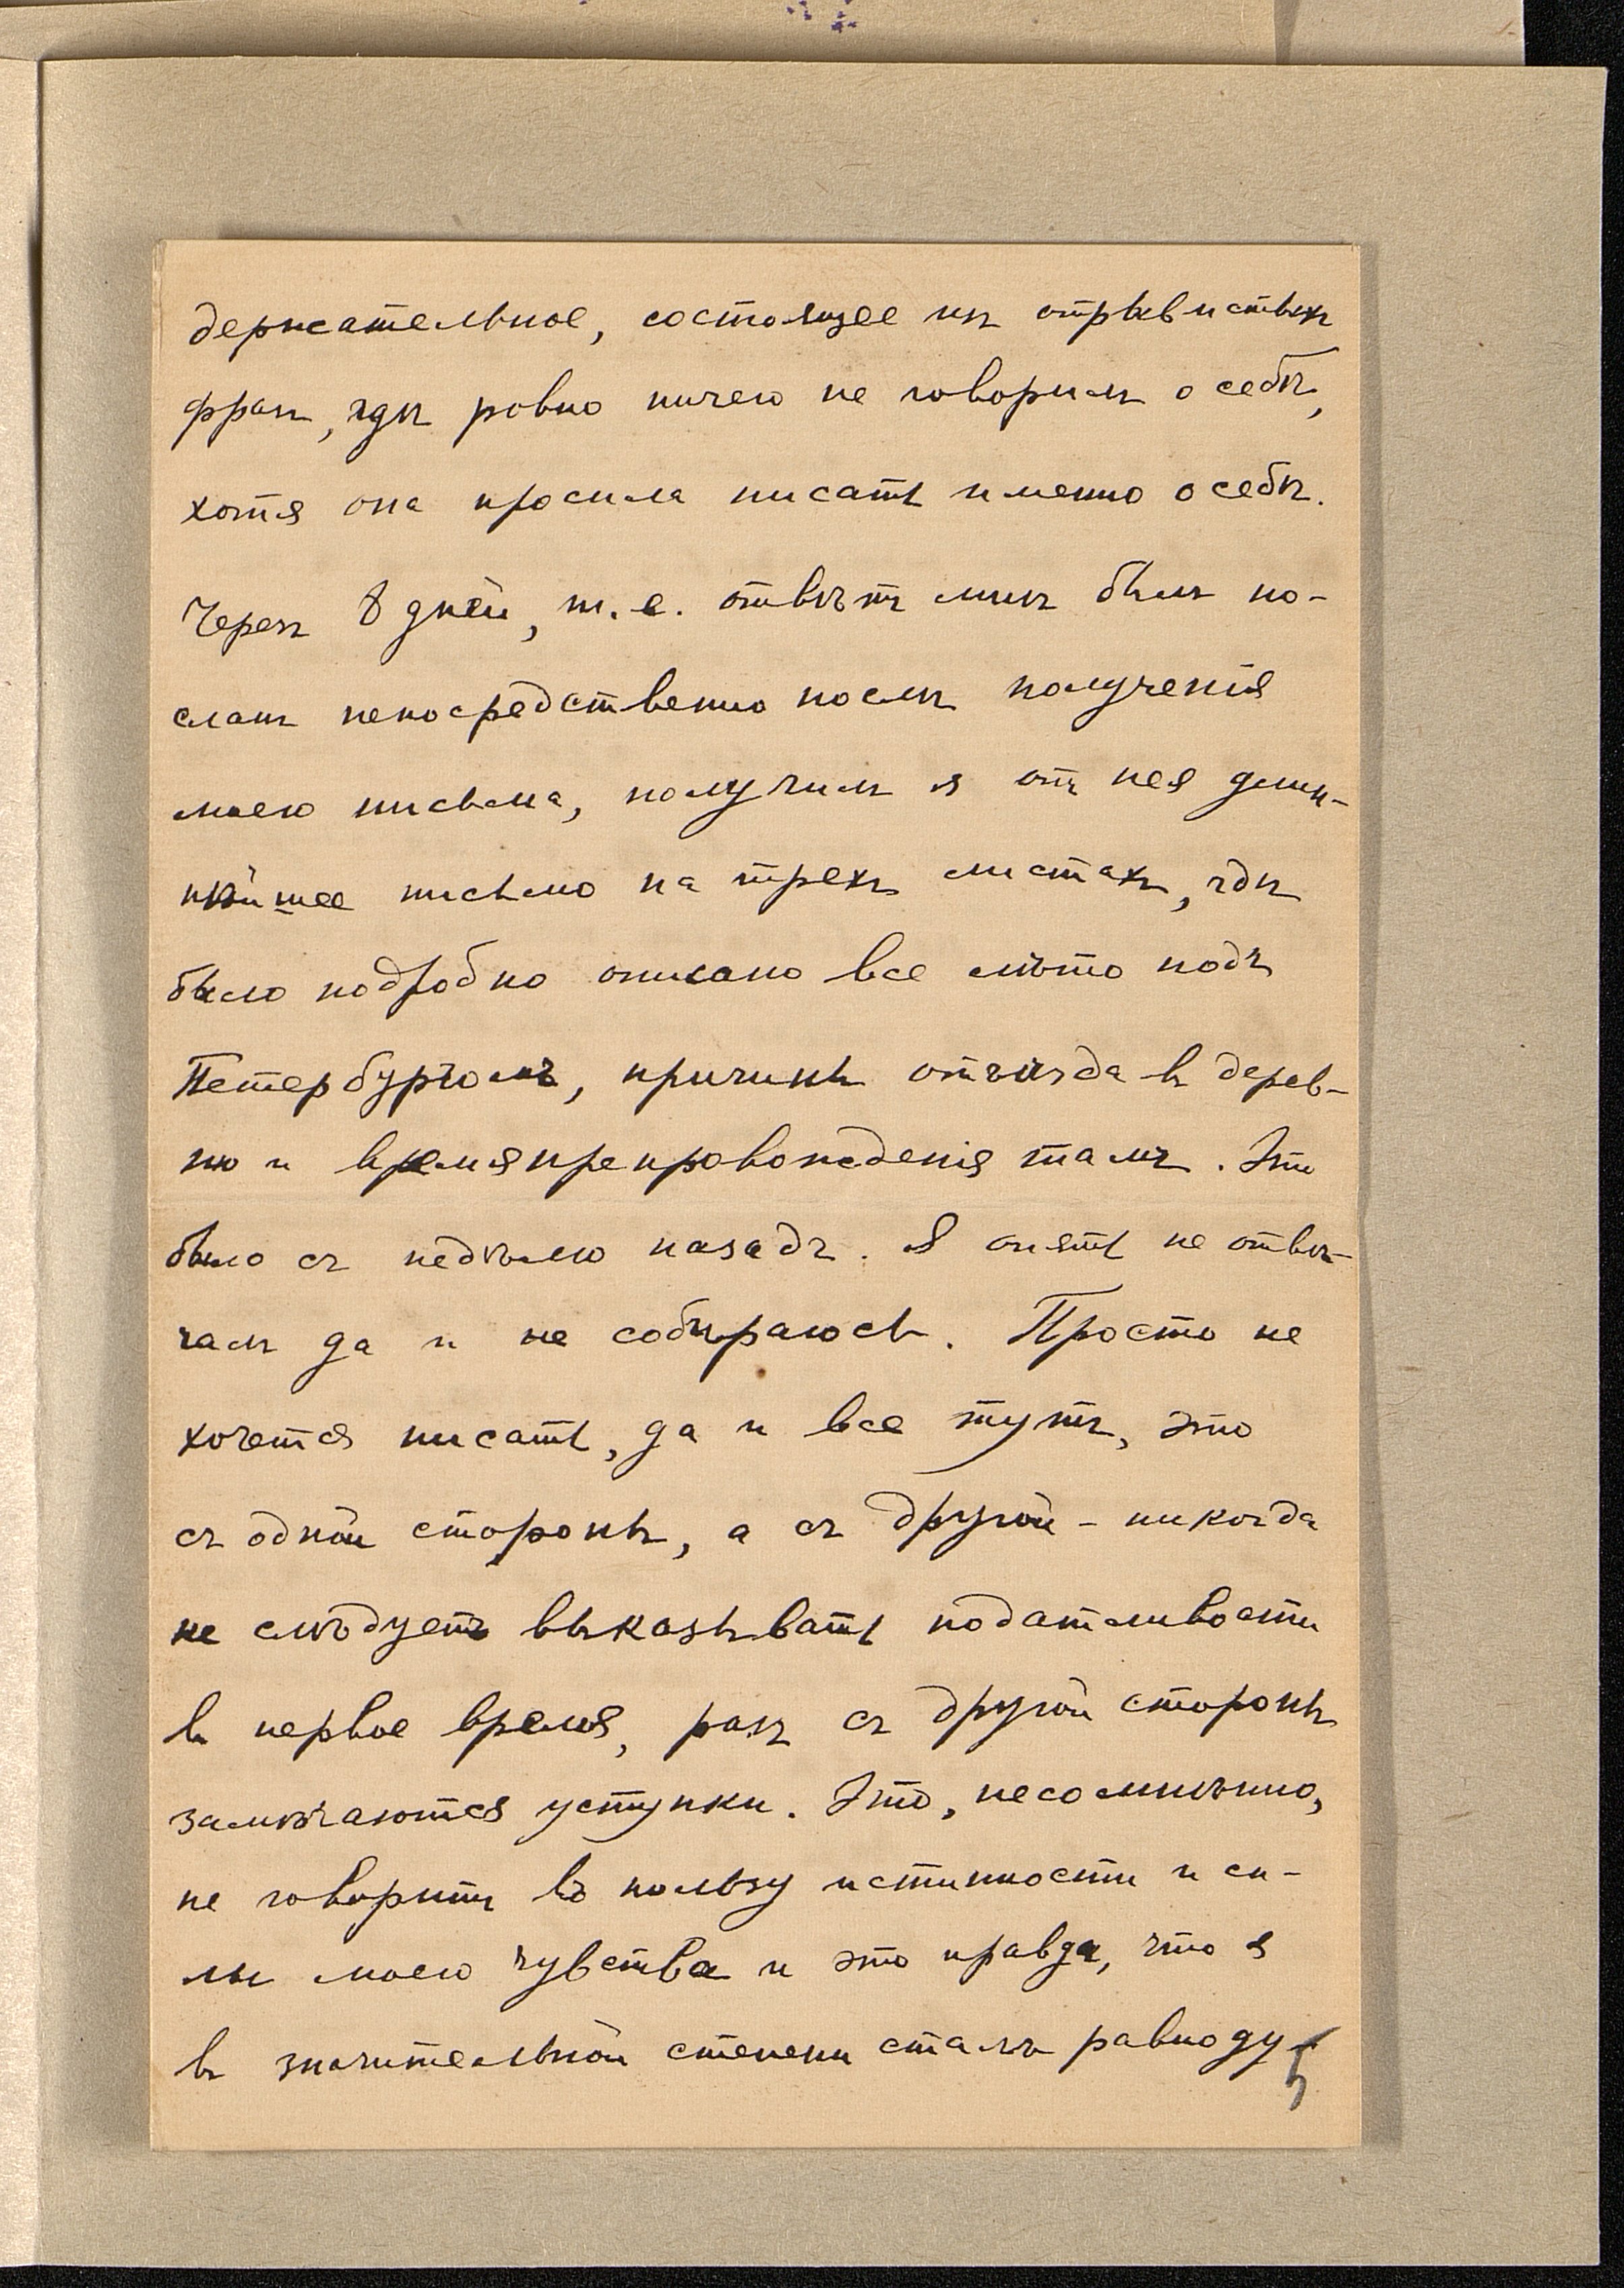 держательное, состоящее изъ отрывистыхъ
фразъ, гдѣ ровно ничего не говорилъ о себѣ,
хотя она просила писать именно о себѣ.
Черезъ 8 дней, т. е. отвѣтъ мнѣ былъ по-
сланъ непосредственно послѣ полученія
моего письма, получилъ я отъ нея длин-
нѣйшее письмо на трехъ листахъ, гдѣ
было подробно описано все лѣто подъ
Петербургомъ, причины отъѣзда въ дерев-
ню и времяпрепровожденія тамъ. Это
было съ недѣлю назадъ. Я опять не отвѣ-
чалъ да и не собираюсь. Просто не
хочется писать, да и все тутъ, это
съ одной стороны, а съ другой - никогда
не слѣдуетъ выказывать податливости
въ первое время, разъ съ другой стороны
замѣчаются уступки. Это, несомнѣнно,
не говоритъ въ пользу истинности и си-
лы моего чувства и это правда, что я
въ значительной степени сталъ равноду-
5